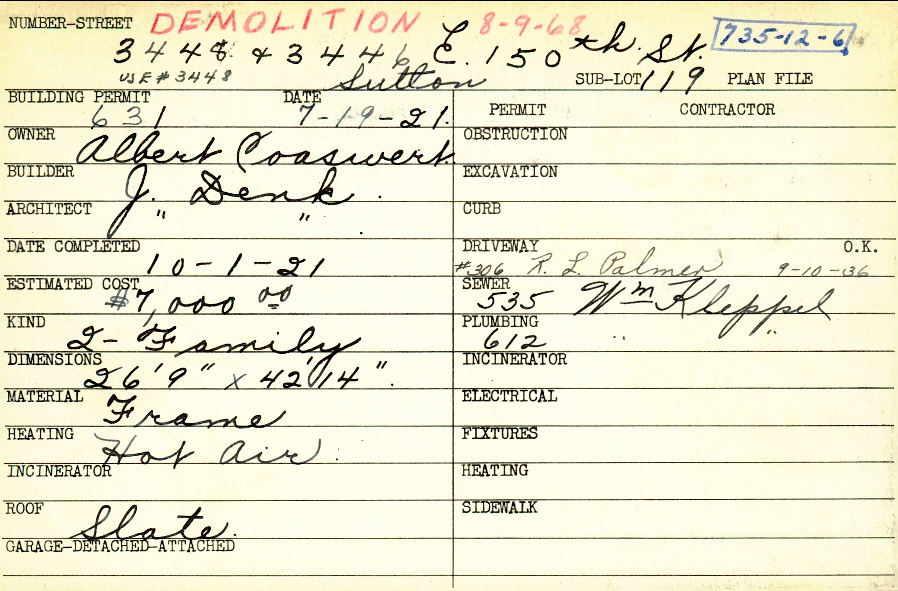 NUMBER-STREET DEMOLITION 8-9-68 735-12-6
3448 & 3446 E. 150th St.
USE # 3448 Sutton SUB-LOT 119 PLAN FILE
BUILDING PERMIT DATE PERMIT CONTRACTOR
631 7-19-21.
OWNER Albert OBSTRUCTION
BUILDER J. Denk EXCAVATION
ARCHITECT " " CURB
DATE COMPLETED DRIVEWAY O.K.
10-1-21 #306 R. L. Palmer 9-10-36
ESTIMATED COST $7,000 00 SEWER 535 Wm Kleppel
KIND 2-Family PLUMBING 612 " "
DIMENSIONS 26'9" x 42'14". INCINERATOR
MATERIAL Frame ELECTRICAL
HEATING Hot Air FIXTURES
INCINERATOR HEATING
ROOF Slate SIDEWALK
GARAGE-DETACHED-ATTACHED